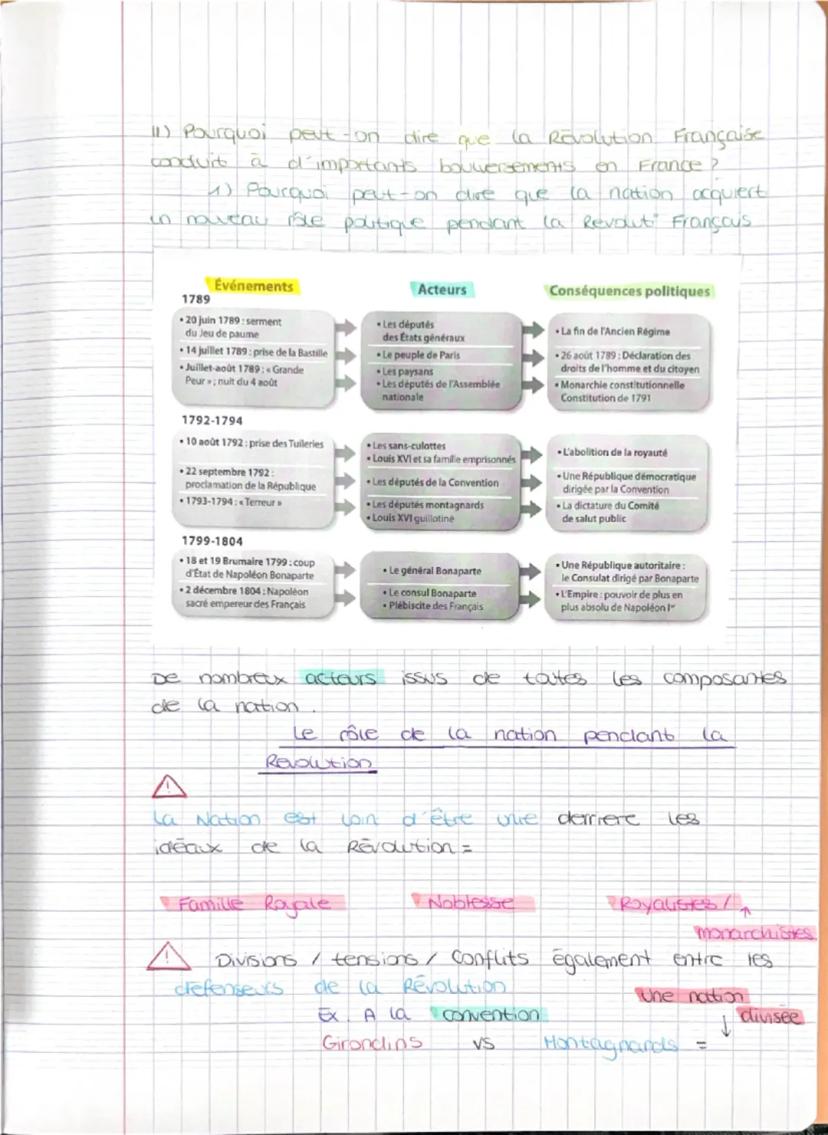 II) Pourquoi peut-on dire que la Révolution Française
conduit à d'importants bouversements en France ?
1) Pourquoi peut-on dire que la nation acquiert
un nouveau rôle politique pendant la Révoluti° Français
Événements
Acteurs
Conséquences politiques
1789
• 20 juin 1789 : serment
du Jeu de paume
• 14 juillet 1789 : prise de la Bastille
• Juillet-août 1789 : « Grande
Peur » ; nuit du 4 août
• Les députés
des États généraux
• Le peuple de Paris
• Les paysans
• Les députés de l'Assemblée
nationale
• La fin de l'Ancien Régime
• 26 août 1789 : Déclaration des
droits de l'homme et du citoyen
• Monarchie constitutionnelle
Constitution de 1791
1792-1794
• 10 août 1792 : prise des Tuileries
• 22 septembre 1792 :
proclamation de la République
• 1793-1794 : « Terreur »
• Les sans-culottes
• Louis XVI et sa famille emprisonnés
• Les députés de la Convention
• Les députés montagnards
• Louis XVI guillotiné
• L'abolition de la royauté
• Une République démocratique
dirigée par la Convention
• La dictature du Comité
de salut public
1799-1804
• 18 et 19 Brumaire 1799 : coup
d'État de Napoléon Bonaparte
• 2 décembre 1804 : Napoléon
sacré empereur des Français
• Le général Bonaparte
• Le consul Bonaparte
• Plébiscite des Français
• Une République autoritaire :
le Consulat dirigé par Bonaparte
• L'Empire : pouvoir de plus en
plus absolu de Napoléon Ier
De nombreux acteurs issus de toutes les composantes
de la nation.
Le rôle de la nation pendant la
Révolution
!
La Nation est loin d'être unie derriere les
idéaux de la Révolution =
Famille Royale
Noblesse
Royalistes /
monarchistes
! Divisions / tensions / conflits également entre les
défenseurs de la Révolution
Une nation
divisée
Ex. A la convention
Girondins vs Montagnards =